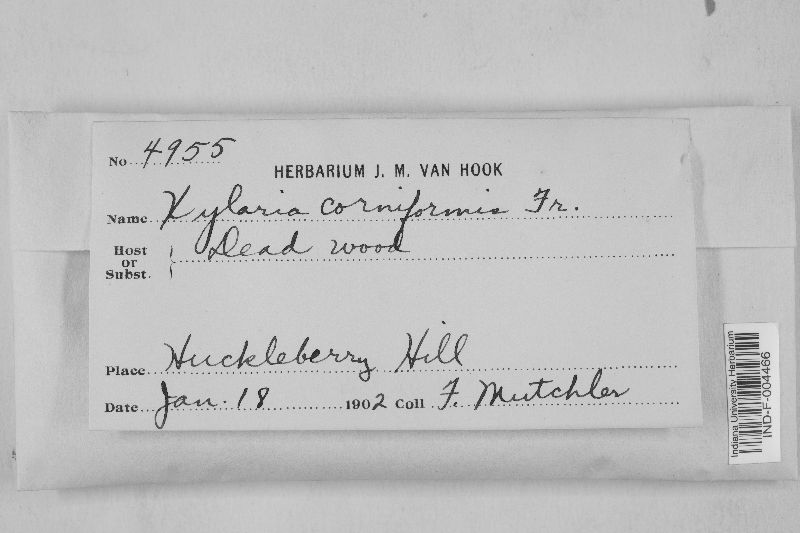 No. 4955
HERBARIUM J. M. VAN HOOK
Name Xylaria corniformis Fr.
Host or Subst. Dead wood
Place Huckleberry Hill
Date Jan. 18 1902 Coll F. Mutchler
Indiana University Herbarium
IND-F-004466